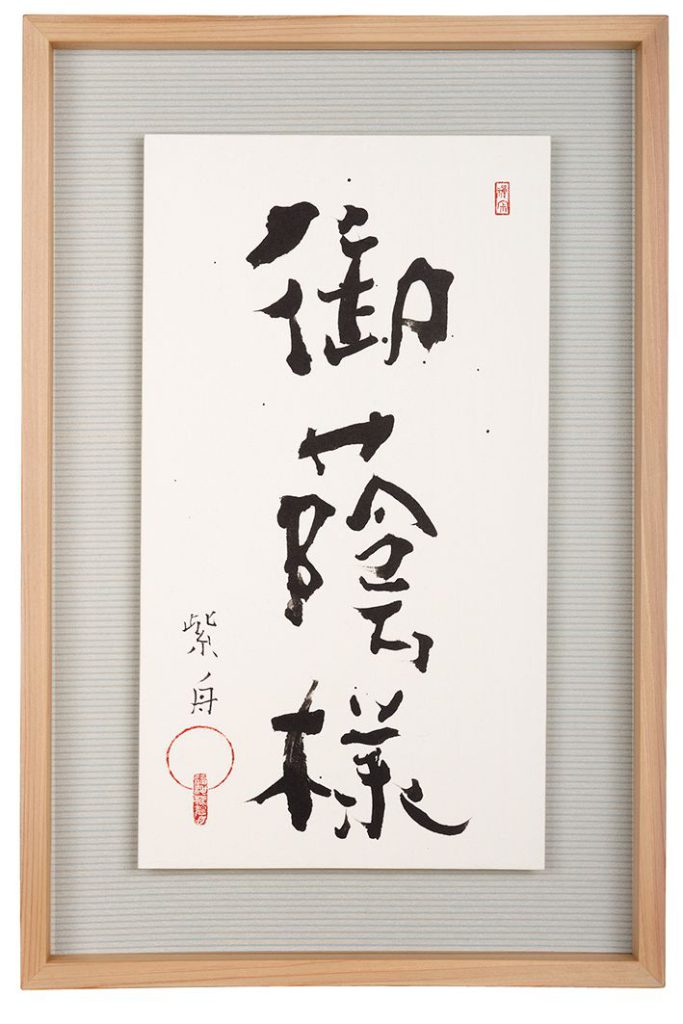 御蔭様
紫舟